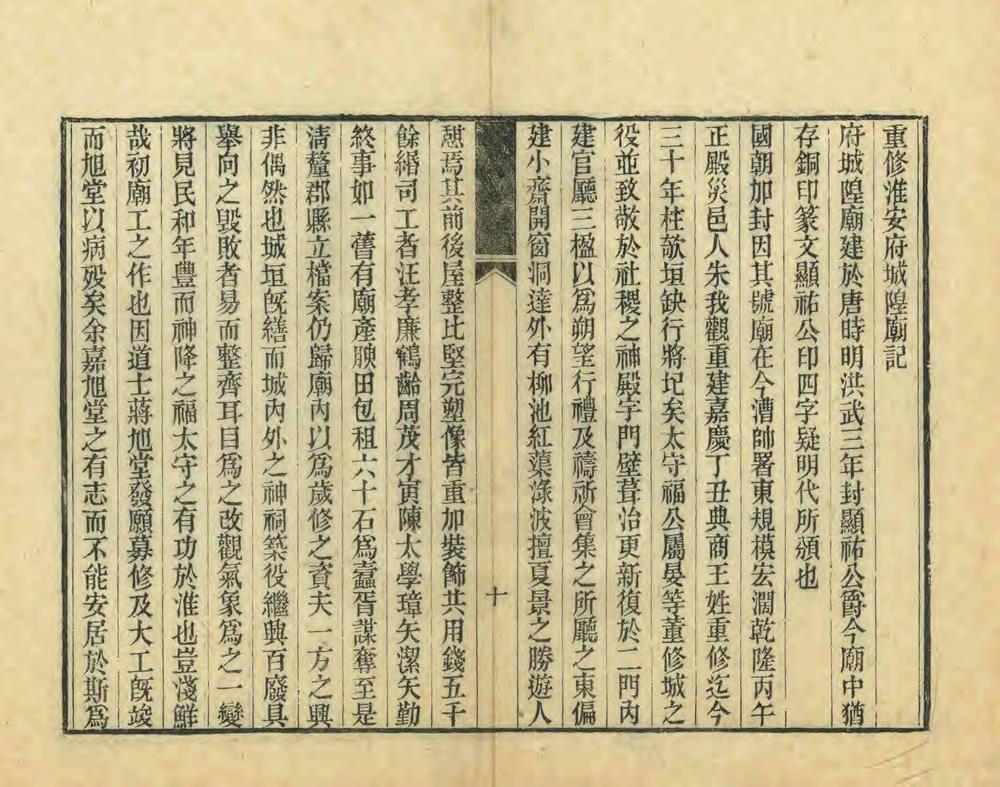 重修淮安府城隍廟記
府城隍廟建於唐時明洪武三年封顯祐公爵今廟中猶
存銅印篆文顯祐公印四字疑明代所頒也
國朝加封因其號廟在今漕帥署東規模宏濶乾隆丙午
正殿災邑人朱我觀重建嘉慶丁丑典商王姓重修迄今
三十年柱欹垣缺行將圮矣太守福公屬晏等董修城之
役並致敬於社稷之神殿宇門壁葺治更新復於二門內
建官廳三楹以爲朔望行禮及禱祈會集之所廳之東偏
建小齋開窗洞達外有柳池紅蕖淥波擅夏景之勝遊人
憇焉其前後屋整比堅完塑像皆重加裝飾共用錢五千
餘緡司工者汪孝廉鶴齡周茂才寅陳太學璋矢潔矢勤
終事如一舊有廟產腴田包租六十石爲蠹胥謀奪至是
清釐郡縣立檔案仍歸廟內以爲歲修之資夫一方之興
非偶然也城垣旣繕而城內外之神祠築役繼興百廢具
舉向之毀敗者易而整齊耳目爲之改觀氣象爲之一變
將見民和年豐而神降之福太守之有功於淮也豈淺鮮
哉初廟工之作也因道士蔣旭堂發願募修及大工旣竣
而旭堂以病歿矣余嘉旭堂之有志而不能安居於斯爲
十